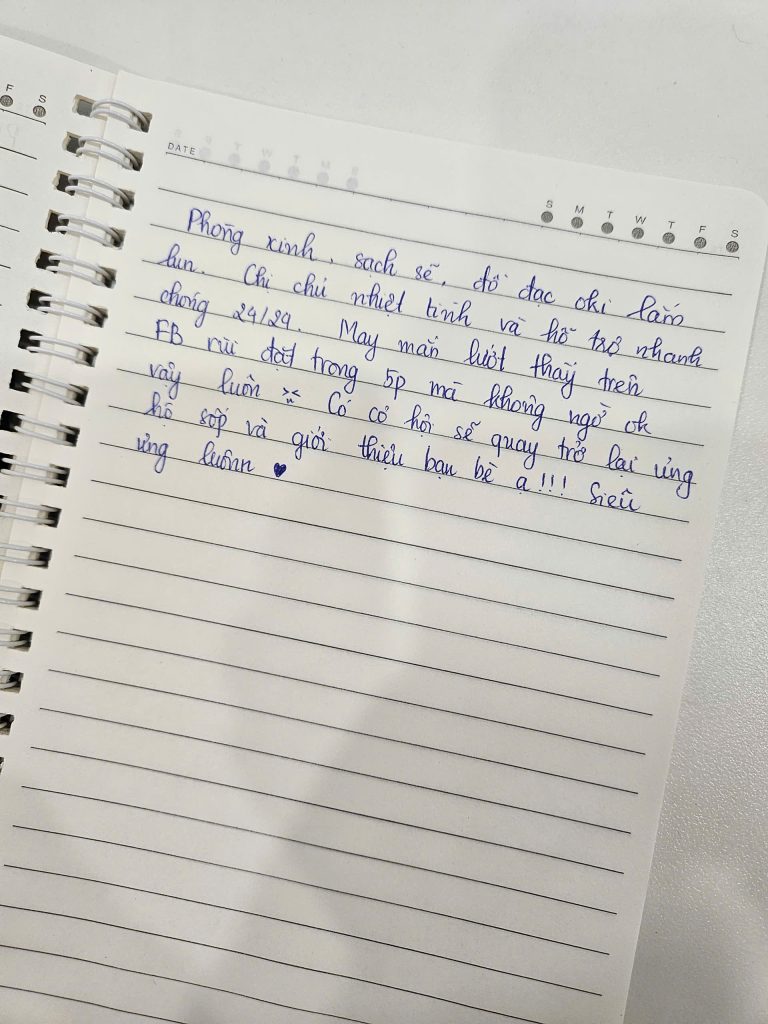 F S
DATE
S M T W T F S
Phòng xinh, sạch sẽ, đồ đạc oki lắm
lun. Chị chủ nhiệt tình và hỗ trợ nhanh
chóng 24/24. May mắn lướt thấy trên
FB rùi đặt trong 5p mà không ngờ ok
vậy luôn :< Có cơ hội sẽ quay trở lại ủng
hộ sốp và giới thiệu bạn bè ạ!!! Siêu
ưng luônn ♥